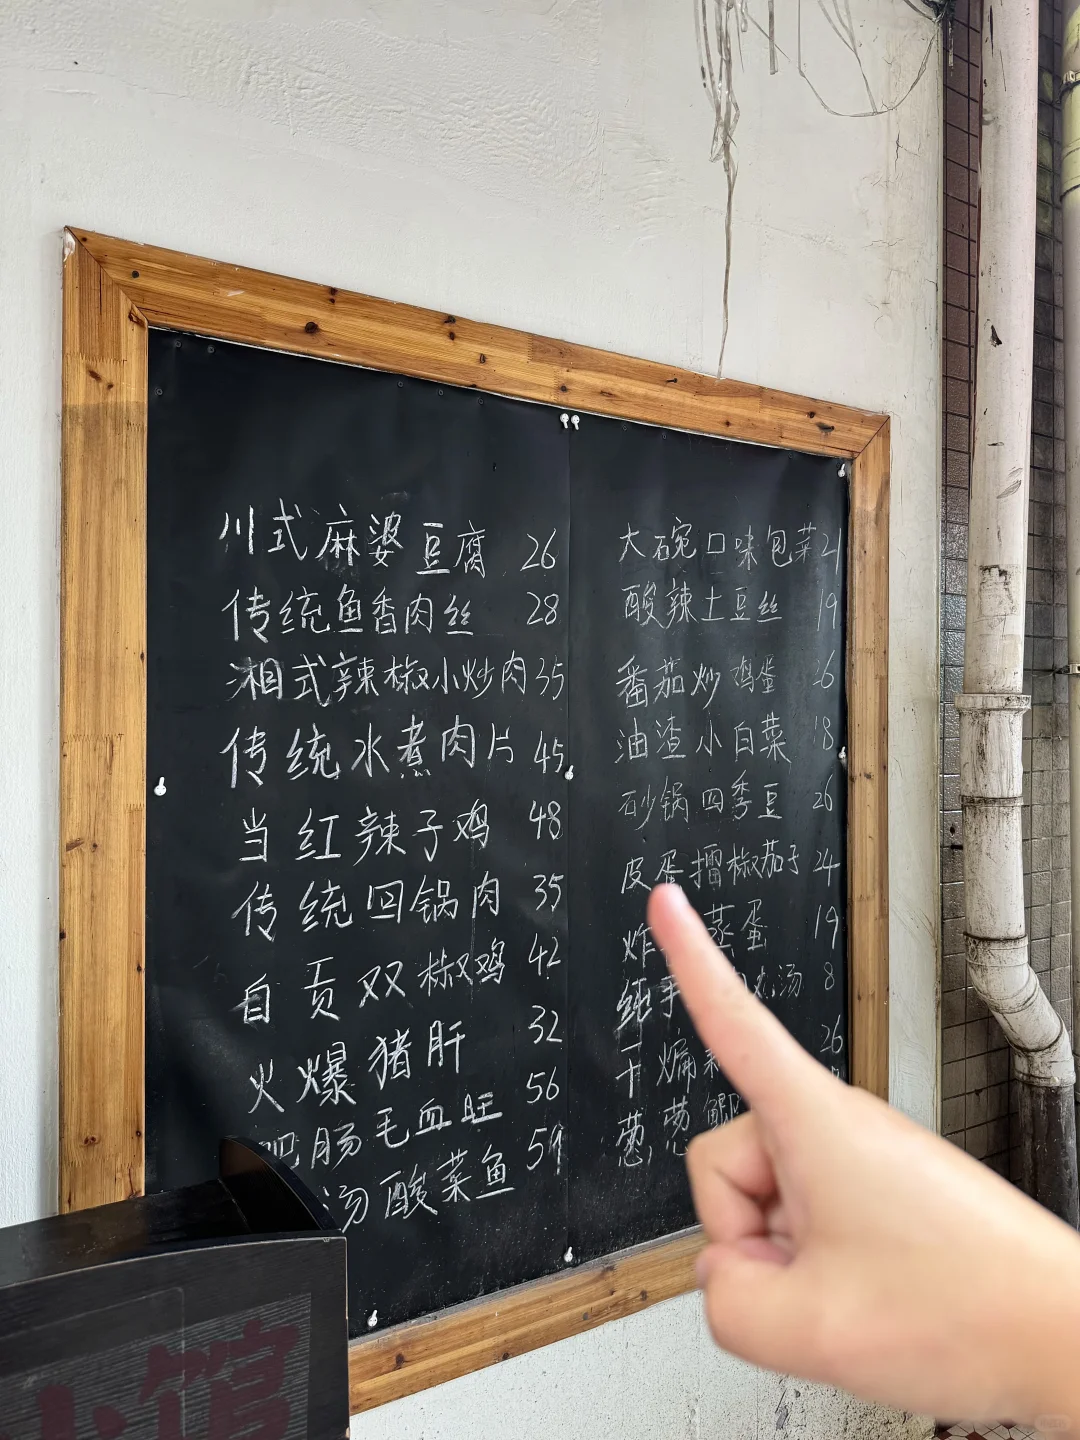 川式麻婆豆腐 26
传统鱼香肉丝 28
湘式辣椒小炒肉 35
传统水煮肉片 45
当红辣子鸡 48
传统回锅肉 35
自贡双椒鸡 42
火爆猪肝 32
肥肠毛血旺 56
汤酸菜鱼 59
大碗口味包菜 21
酸辣土豆丝 19
番茄炒鸡蛋 26
油渣小白菜 18
砂锅四季豆 26
皮蛋擂椒茄子 24
炸 蒸蛋 19
纯手 肉丸汤 8
干煸 26
葱葱鲫
小馆